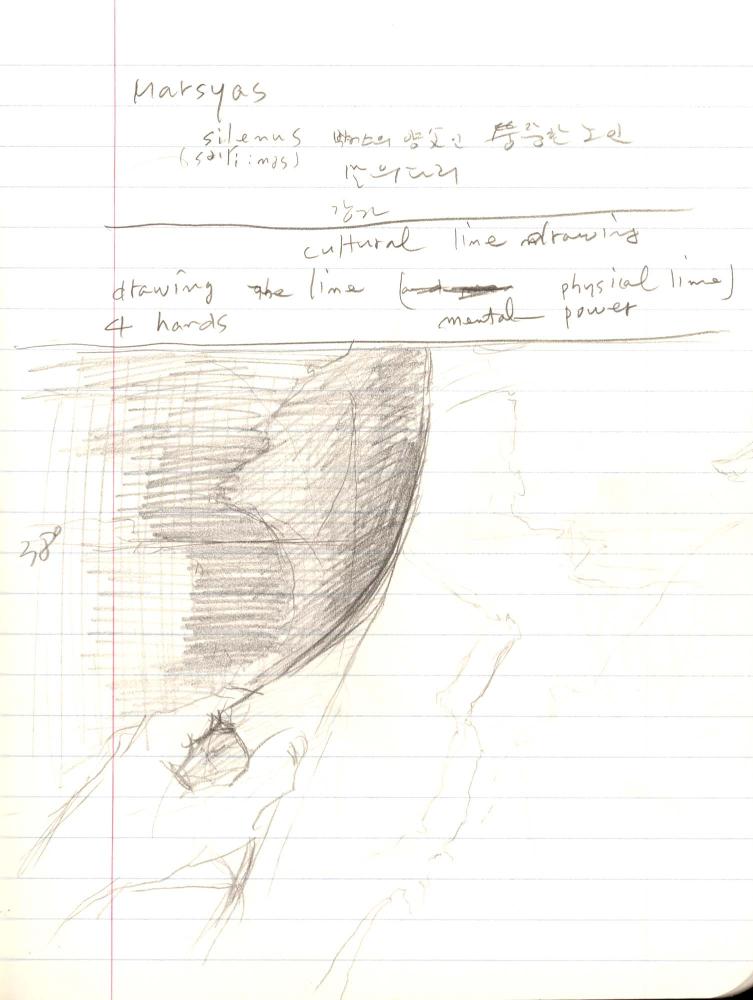 Marsyas
silenus 박카스의 양부인 뚱뚱한 노인
말의 다리
cultural line drawing
drawing the line ( physical line)
4 hands mental power
38°